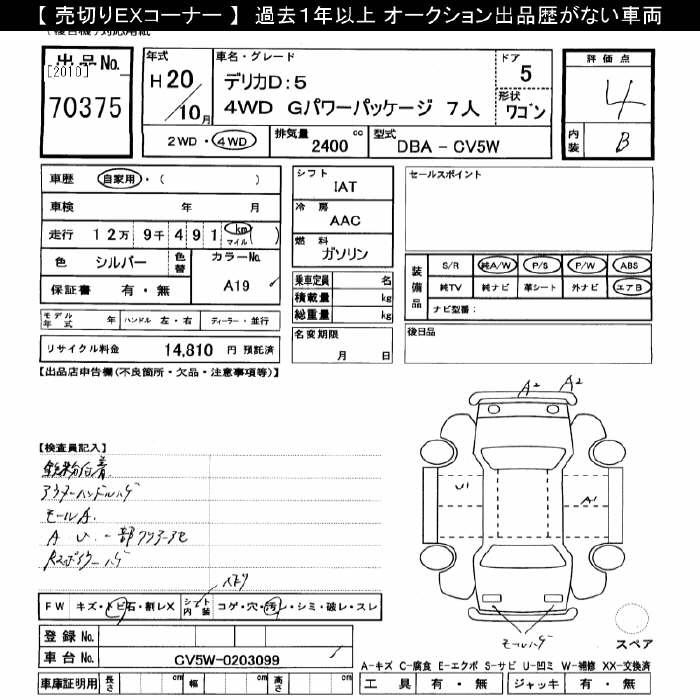 【 売切りEXコーナー 】 過去1年以上 オークション出品歴がない車両
出品No.
[2010]
70375
年式
H 20 / 10 月
車名・グレード
デリカD:5
4WD Gパワーパッケージ 7人
ドア
5
形状
ワゴン
2WD・4WD
排気量
2400 cc
型式
DBA - CV5W
評価点
4
内装
B
車歴 自家用・( )
車検 年 月
走行 12万 9千 491 km マイル ( )
色 シルバー 色替 カラーNo. A19
保証書 有・無
モデル年式 年 ハンドル 左・右 ディーラー・並行
リサイクル料金 14,810 円 預託済
シフト
IAT
冷房
AAC
燃料
ガソリン
乗車定員 名
積載量 kg
総重量 kg
名変期限
月 日
セールスポイント
装備品
S/R 純A/W P/S P/W ABS
純TV 純ナビ 革シート 外ナビ エアB
ナビ型番:
後日品
【出品店申告欄(不良箇所・欠品・注意事項等)】
【検査員記入】
鉄粉付着
アウターハンドルハゲ
モールA.
A U. 一部
A2 A2
U1
A1
モールハゲ
スペア
FW キズ・トビ石・割レX シート内装 コゲ・穴・汚レ・シミ・破レ・スレ
登録No.
車台No. CV5W-0203099
車庫証明用 長さ cm 幅 cm 高さ cm
A-キズ C-腐食 E-エクボ S-サビ U-凹ミ W-補修 XX-交換済
工具 有・無 ジャッキ 有・無